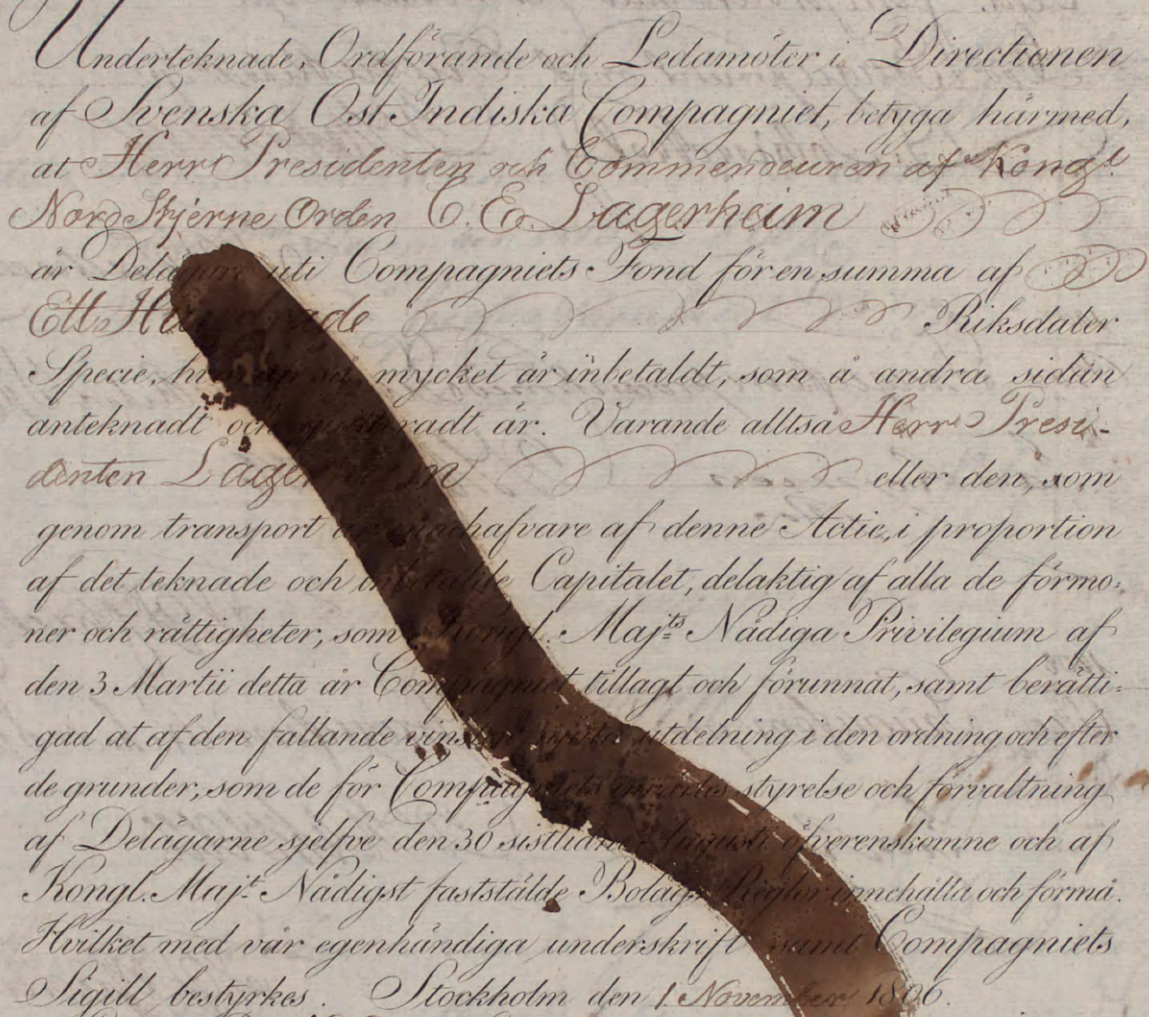 Underteknade, Ordförande och Ledamöter i Directionen
af Svenska Ost Indiska Compagniet, betyga härmed,
at Herr Presidenten och Commendeuren af Kongl.
Nord Stjerne Orden C. E. Lagerheim
är Delägare uti Compagniets Fond för en summa af
Ett Hundrade Riksdaler
Specie, hvaraf så mycket är inbetaldt, som å andra sidan
anteknadt och qvitteradt är. Varande alltså Herr Presi-
denten Lagerheim eller den, som
genom transport är innehafvare af denne Actie, i proportion
af det teknade och inbetalde Capitalet, delaktig af alla de förmo-
ner och rättigheter, som Kongl. Maj:ts Nådiga Privilegium af
den 3 Martii detta år Compagniet tillagt och förunnat, samt berätti-
gad at af den fallande vinsten utdelning i den ordning och efter
de grunder, som de för Compagniets styrelse och förvaltning
af Delägarne sjelfve den 30 sistlidne Augusti öfverenskomne och af
Kongl. Maj:t Nådigst fastställde Bolags Reglor innehålla och förmå.
Hvilket med vår egenhändiga underskrift samt Compagniets
Sigill bestyrkes. Stockholm den 1 November 1806.